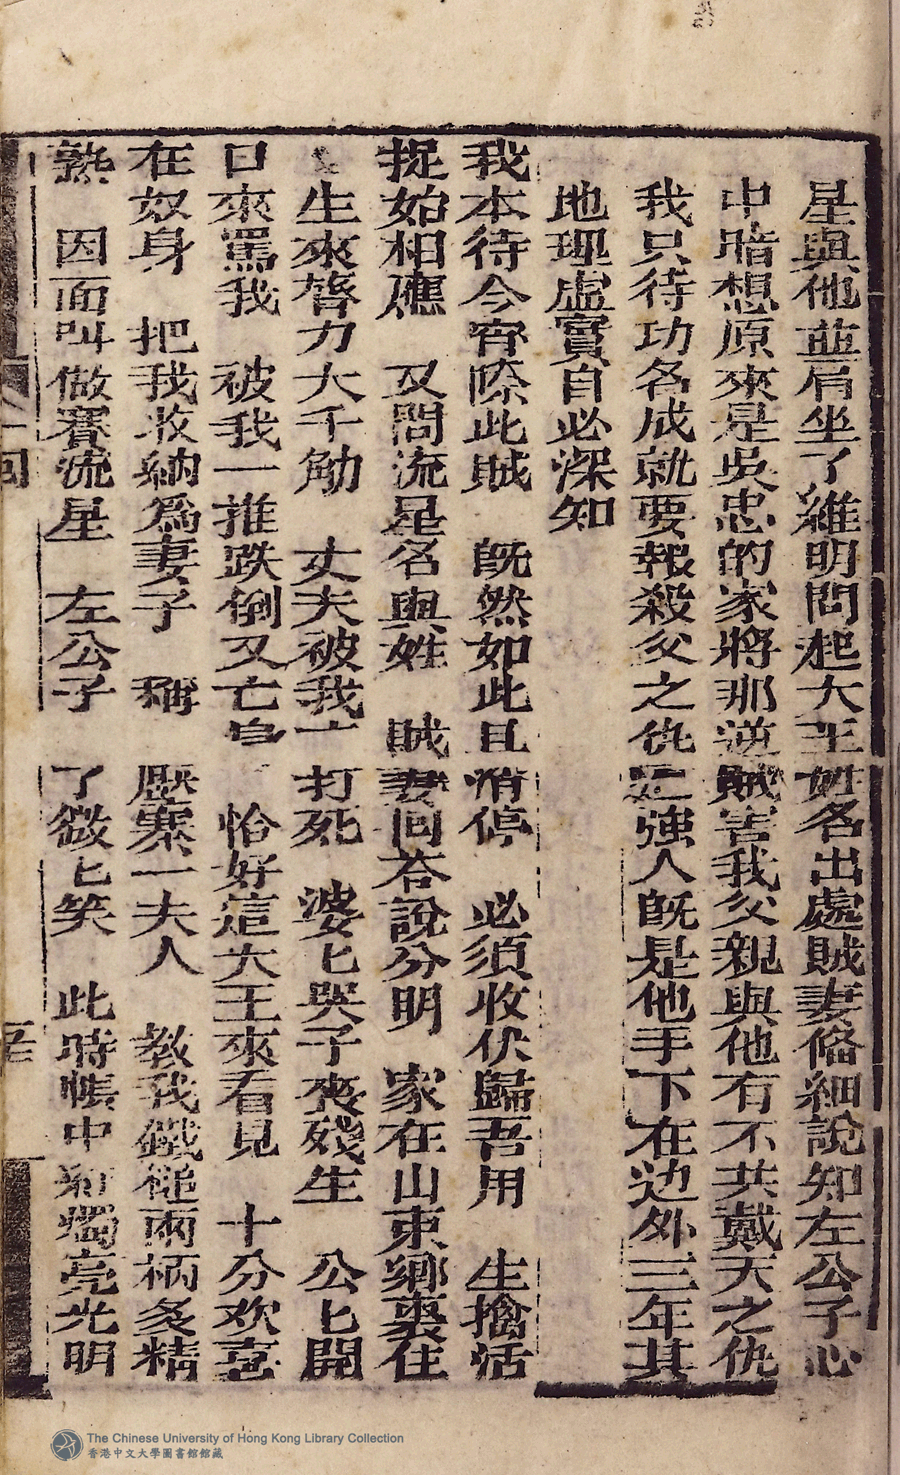 星與他並肩坐了維明問起大王姓名出處賊妻俻細說知左公子心
中暗想原來是吳忠的家將那逆賊害我父親與他有不共戴天之仇
我只待功名成就要報殺父之仇 強人既是他手下在边外三年其
地理虛實自必深知
我本待今宵除此賊 既然如此且消停 必須收伏歸吾用 生擒活
捉始相應 又問流星名與姓 賊妻回答說分明 家在山東鄉裏住
生來膂力大千觔 丈夫被我一打死 婆匕哭子喪殘生 公匕開
口來罵我 被我一推跌倒又亡身 恰好這大王來看見 十分欢喜
在奴身 把我收納爲妻子 稱 壓寨一夫人 教我鐵槌兩柄多精
熟 因而叫做賽流星 左公子 了微匕笑 此時帳中紅燭亮光明
回
The Chinese University of Hong Kong Library Collection
香港中文大學圖書館館藏